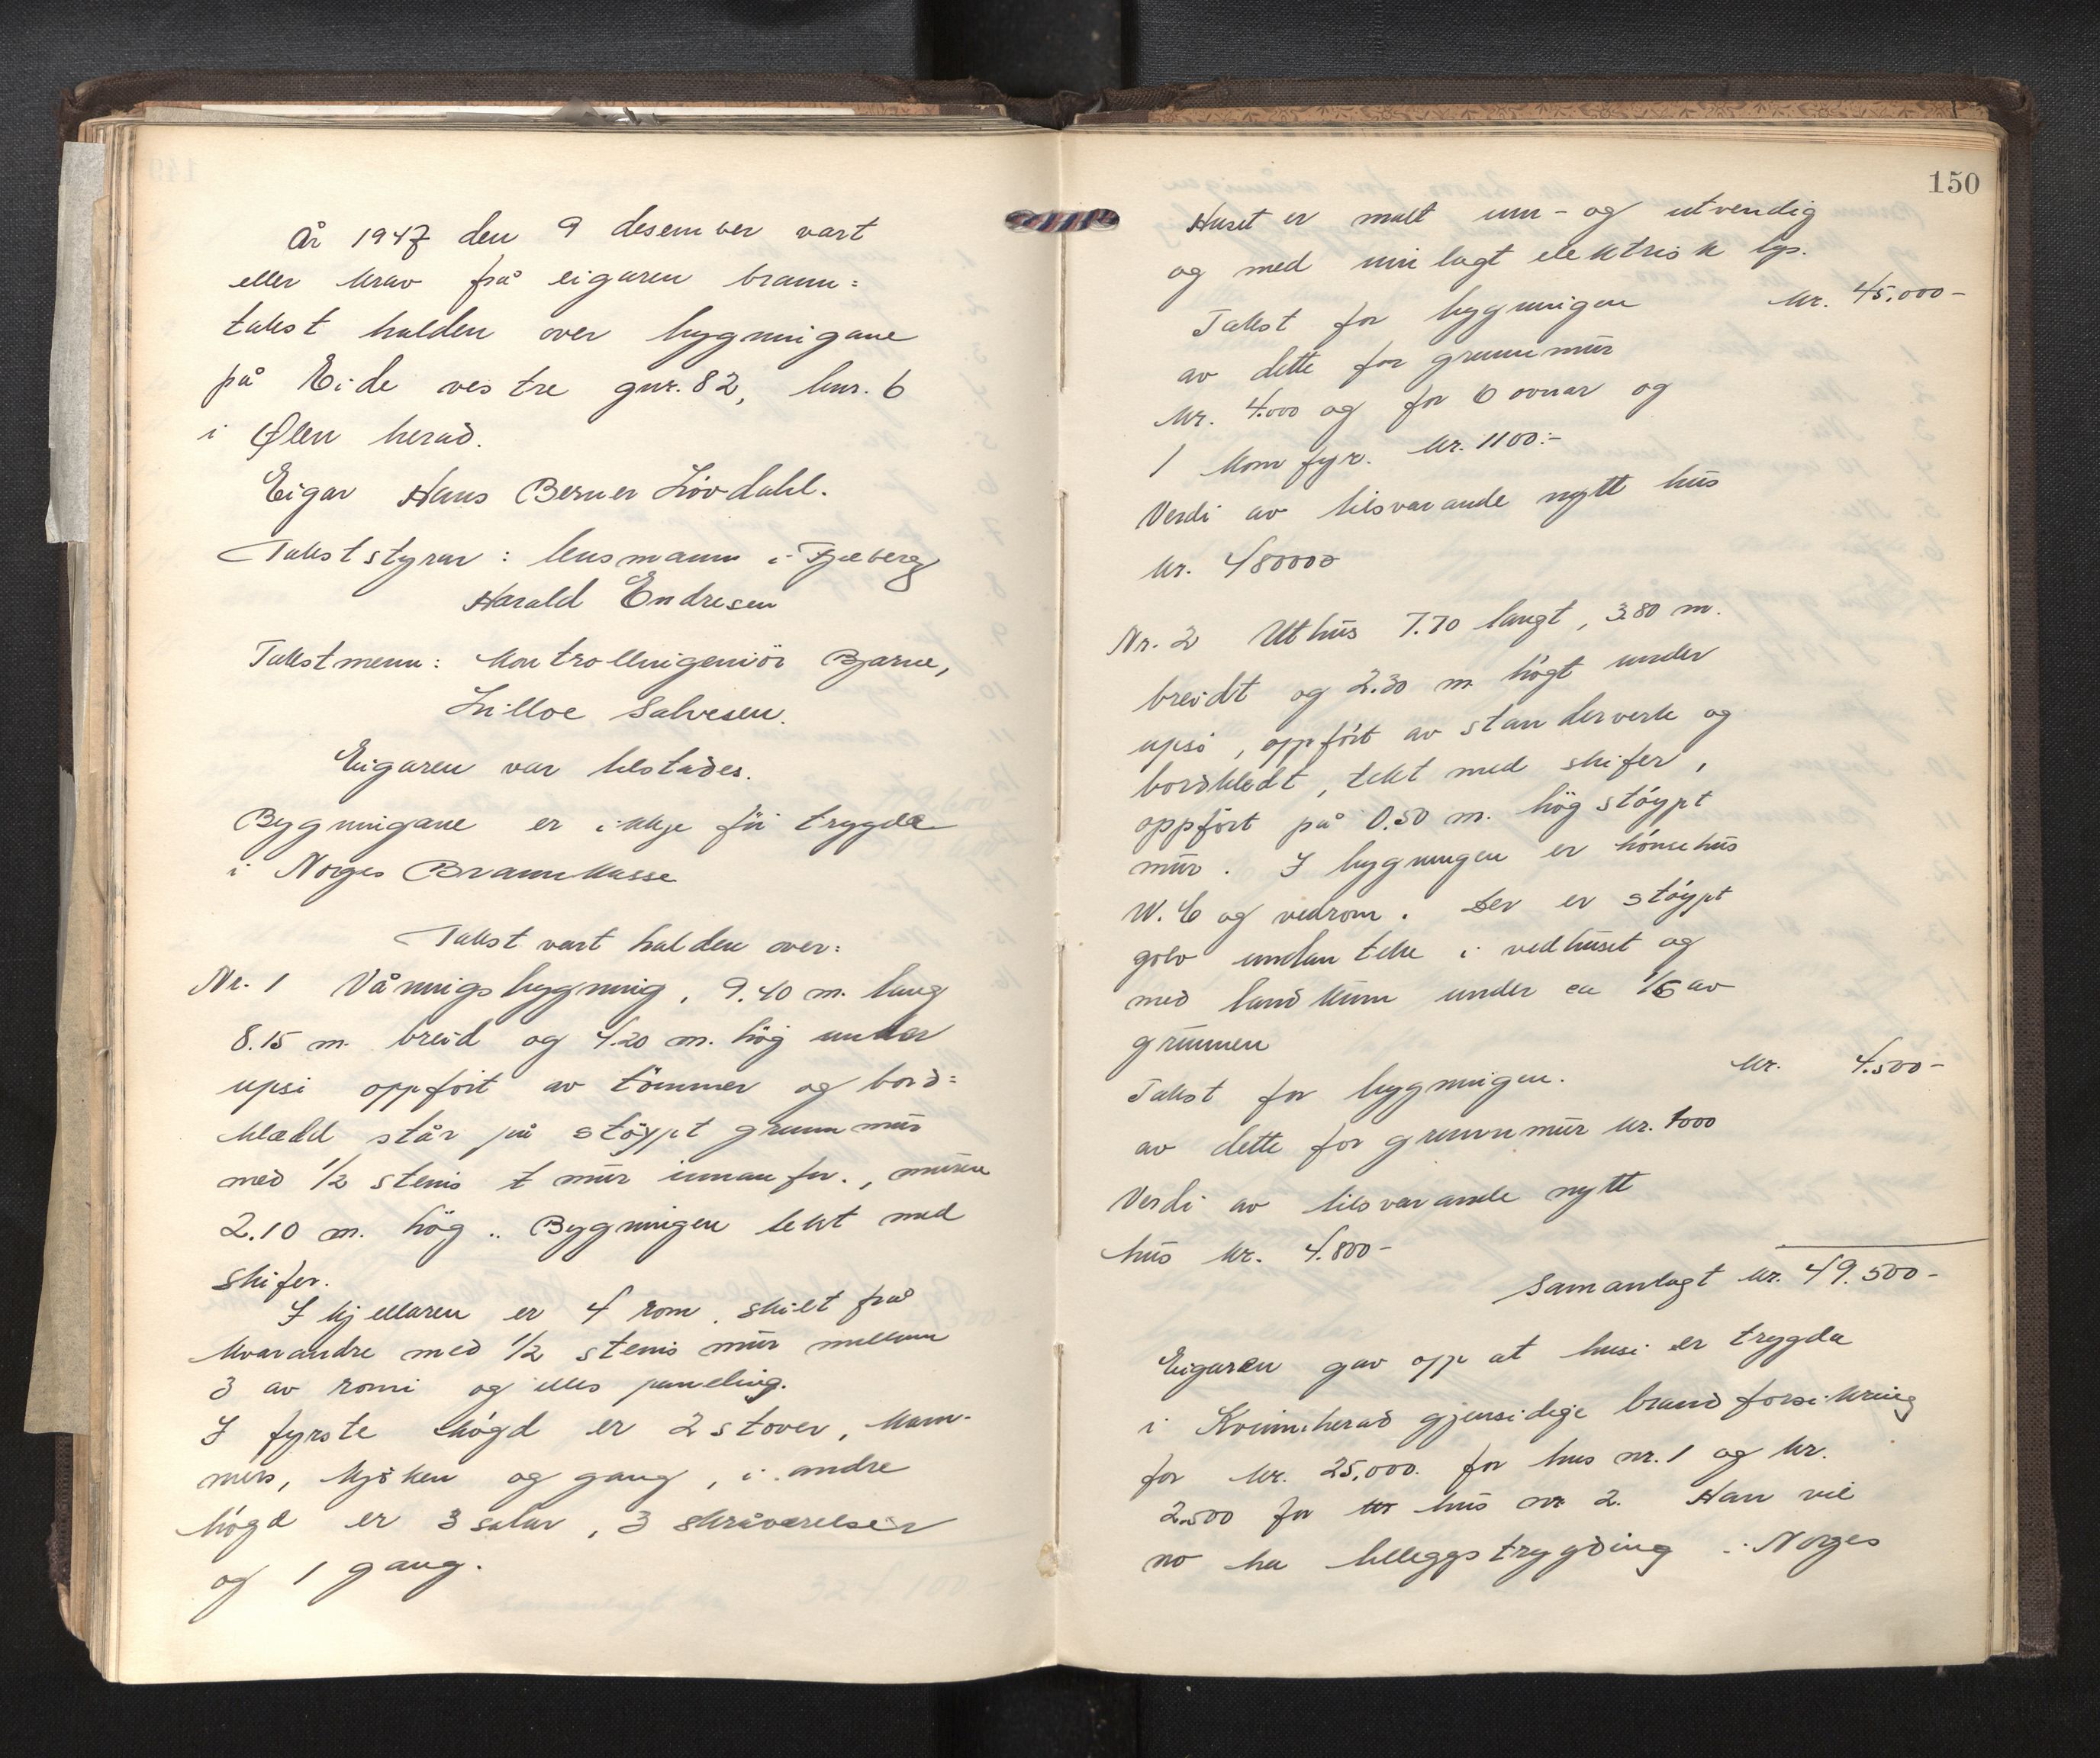 År 1947 den 9 desember vart
etter krav frå eigaren brann=
takst halden over bygningane
på Eide vestre gnr. 82, bnr. 6
i Ølen herad.
Eigar Hans Berner Lövdahl.
Takststyrar: lensmann i Fjelberg
Harald Endresen
Takstmenn: Kontrollingeniör Bjarne,
Lilloe Salvesen.
Eigaren var tilstades.
Bygningane er ikkje för trygda
i Norges Brannkasse
Takst vart halden over:
Nr. 1 Våningsbygning, 9.40 m. lang
8.15 m. breid og 4.20 m. hög under
upsi oppfört av tömmer og bord=
kledd står på stöypt grunnmur
med 1/2 steins t mur innanfor., muren
2.10 m. hög.. Bygningen tekt med
skifer.
I kjellaren er 4 rom. skilt frå
kvarandre med 1/2 steins mur mellom
3 av romi og elles paneling.
I fyrste högd er 2 stover, kam-
mers, kjöken og gang, i andre
högd er 3 salar, 3 skråværelser
og 1 gang.
150
Huset er malt inn- og utvendig
og med innlagt elektrisk lys.
Takst for bygningen kr. 45.000-
av dette for grunnmur
kr. 4.000 og for 6 ovnar og
1 komfyr. kr. 1100:-
Verdi av tilsvarande nytt hus
kr. 48000
Nr. 2 Uthus 7.70 langt, 3.80 m.
breidt og 2.30 m högt under
upsi, oppfört av standerverk og
bordkledt, tekt med skifer,
oppfört på 0.50 m. hög stöypt
mur. I bygningen er hönsehus
W.C og vedrom. Der er stöypt
golv undan teke i vedhuset og
med landkum under ca 1/6 av
grunnen
Takst for bygningen. kr. 4.500-
av dette for grunnmur kr. 1000
Verdi av tilsvarande nytt
hus kr. 4.800-
Samanlagt kr. 49.500-
Eigaren gav opp at husi er trygda
i Kvinnherad gjensidige brandforsikring
for kr. 25.000. for hus nr. 1 og kr.
2.500 for hus nr 2. Han vil
no ha tilleggstrygding i Norges